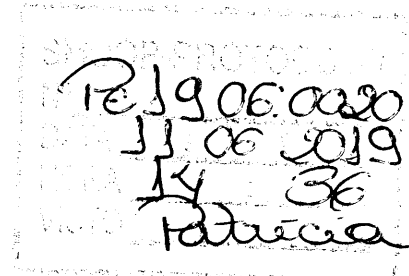 Pc 19.06.0020
11 06 2019
14 36
Patricia